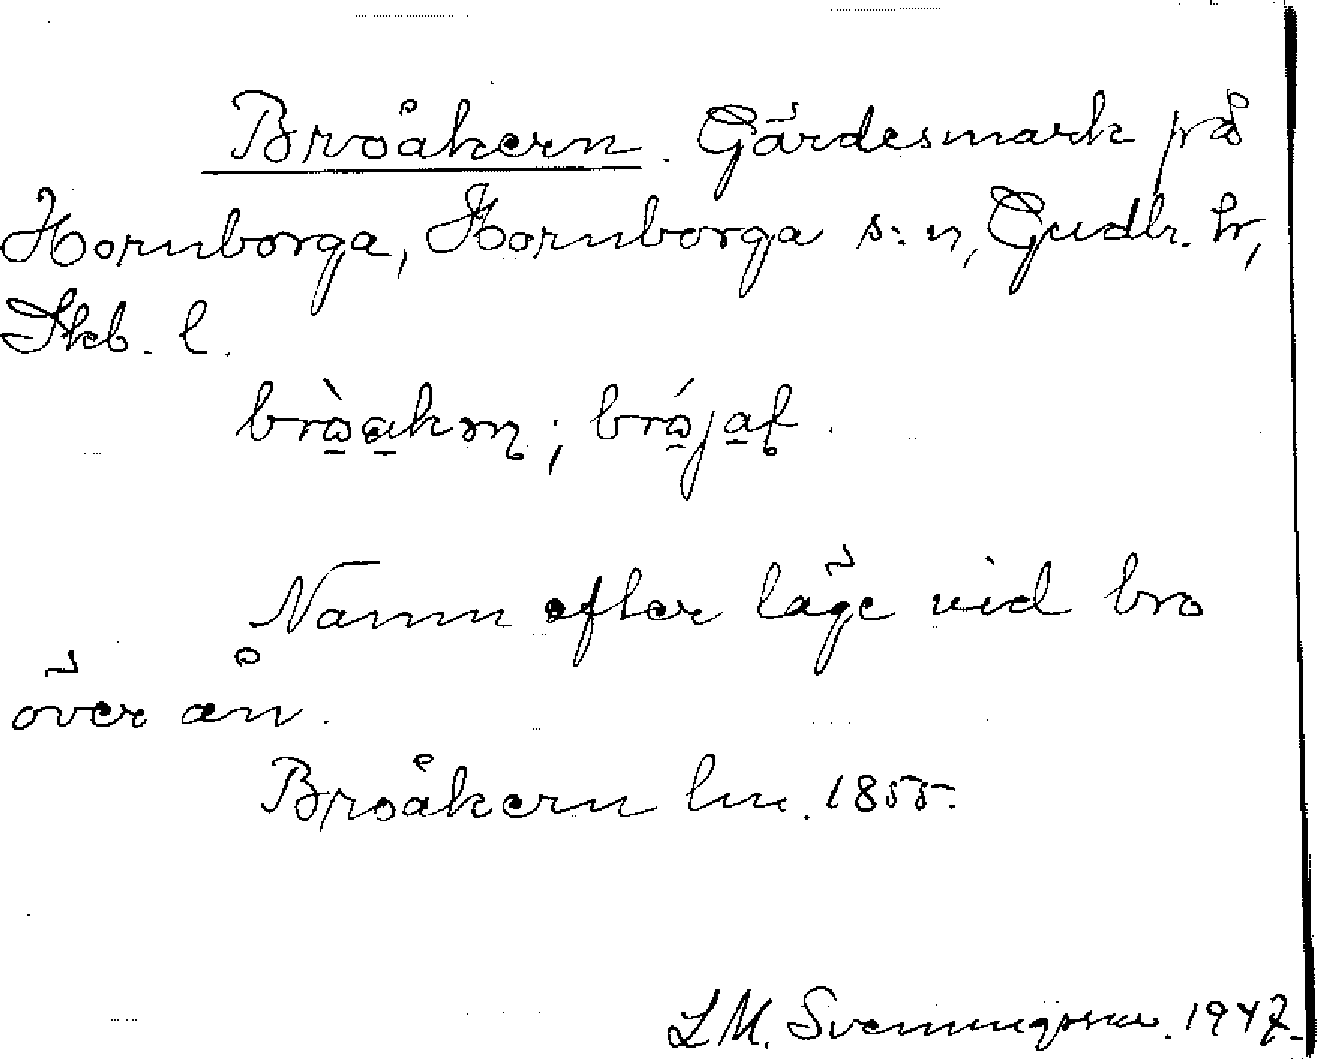 Broåkern. Gärdesmark på
Hornborga, Hornborga s:n, Gudh. hr,
Skb. l.
Namn efter läge vid bro
över ån.
Broåkern lm. 1855.
LM. Svenungsson. 1947.